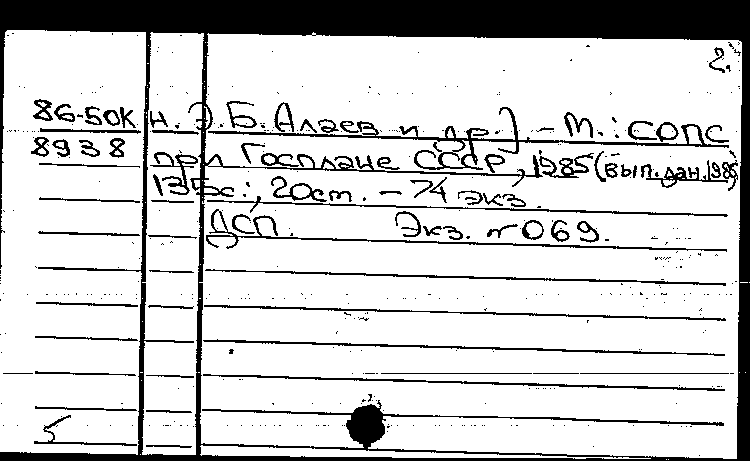 2.
86-50К н. Э.Б. Алаев и др.]. - М.: СОПС
8938 при Госплане СССР, 1985 (вып.дан.1985)
135с., 20см. - 74 экз.
ДСП. Экз. №069.
5